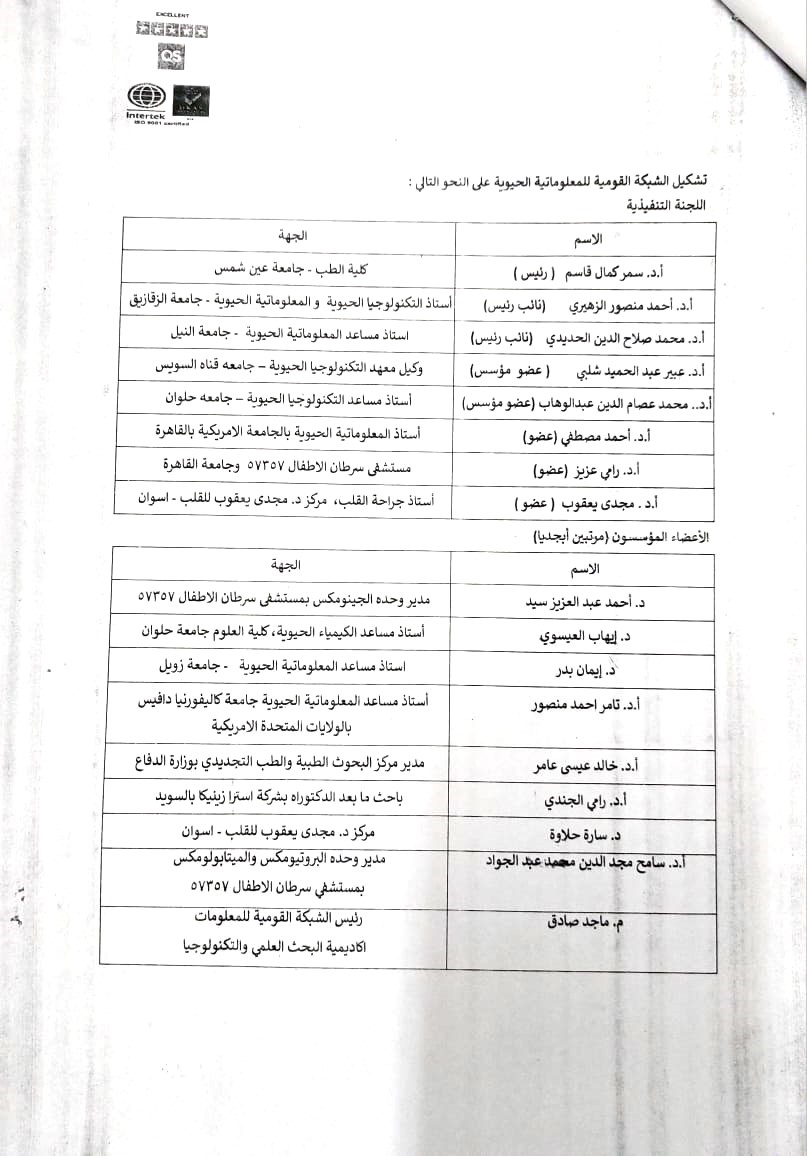 EXCELLENT
QS
Intertek
ISO 9001 certified
تشكيل الشبكة القومية للمعلوماتية الحيوية على النحو التالي :
اللجنة التنفيذية
الاسم الجهة
أ.د. سمر كمال قاسم ( رئيس ) كلية الطب - جامعة عين شمس
أ.د. أحمد منصور الزهيري (نائب رئيس) أستاذ التكنولوجيا الحيوية و المعلوماتية الحيوية - جامعة الزقازيق
أ.د. محمد صلاح الدين الحديدي (نائب رئيس) استاذ مساعد المعلوماتية الحيوية - جامعة النيل
أ.د. عبير عبد الحميد شلبي ( عضو مؤسس) وكيل معهد التكنولوجيا الحيوية – جامعه قناه السويس
أ.د.. محمد عصام الدين عبدالوهاب (عضو مؤسس) أستاذ مساعد التكنولوجيا الحيوية – جامعه حلوان
أ.د. أحمد مصطفي (عضو) أستاذ المعلوماتية الحيوية بالجامعة الامريكية بالقاهرة
أ.د. رامي عزيز (عضو) مستشفى سرطان الاطفال ٥٧٣٥٧ وجامعة القاهرة
أ.د . مجدى يعقوب ( عضو ) أستاذ جراحة القلب، مركز د. مجدى يعقوب للقلب - اسوان
الأعضاء المؤسسون (مرتبين أبجديا)
الاسم الجهة
د. أحمد عبد العزيز سيد مدير وحده الجينومكس بمستشفى سرطان الاطفال ٥٧٣٥٧
د. إيهاب العيسوي أستاذ مساعد الكيمياء الحيوية، كلية العلوم جامعة حلوان
د. إيمان بدر استاذ مساعد المعلوماتية الحيوية - جامعة زويل
أ.د. تامر احمد منصور أستاذ مساعد المعلوماتية الحيوية جامعة كاليفورنيا دافيس
بالولايات المتحدة الامريكية
أ.د. خالد عيسى عامر مدير مركز البحوث الطبية والطب التجديدي بوزارة الدفاع
أ.د. رامي الجندي باحث ما بعد الدكتوراه بشركة استرا زينيكا بالسويد
د. سارة حلاوة مركز د. مجدى يعقوب للقلب - اسوان
أ.د. سامح مجد الدين محمد عبد الجواد مدير وحده البروتيومكس والميتابولومكس
بمستشفي سرطان الاطفال ٥٧٣٥٧
م. ماجد صادق رئيس الشبكة القومية للمعلومات
اكاديمية البحث العلمي والتكنولوجيا